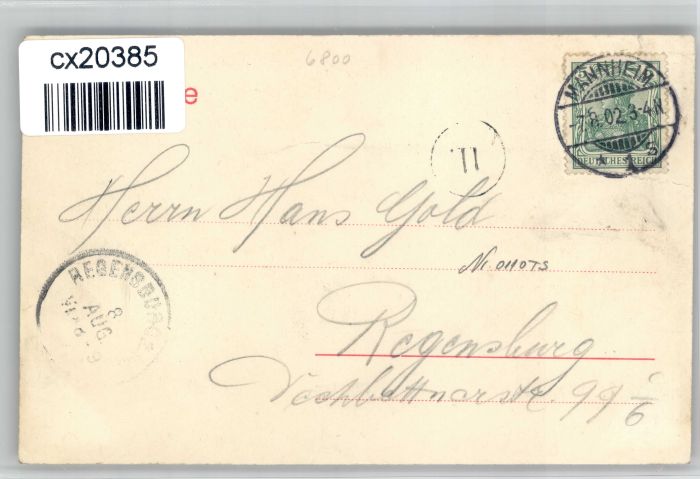 cx20385
6800
e
MANNHEIM
8.02 3-4N
S
DEUTSCHES REICH
11.
Herrn Hans Gold
REGENSBURG
8
AUG
Regensburg
99 1/6